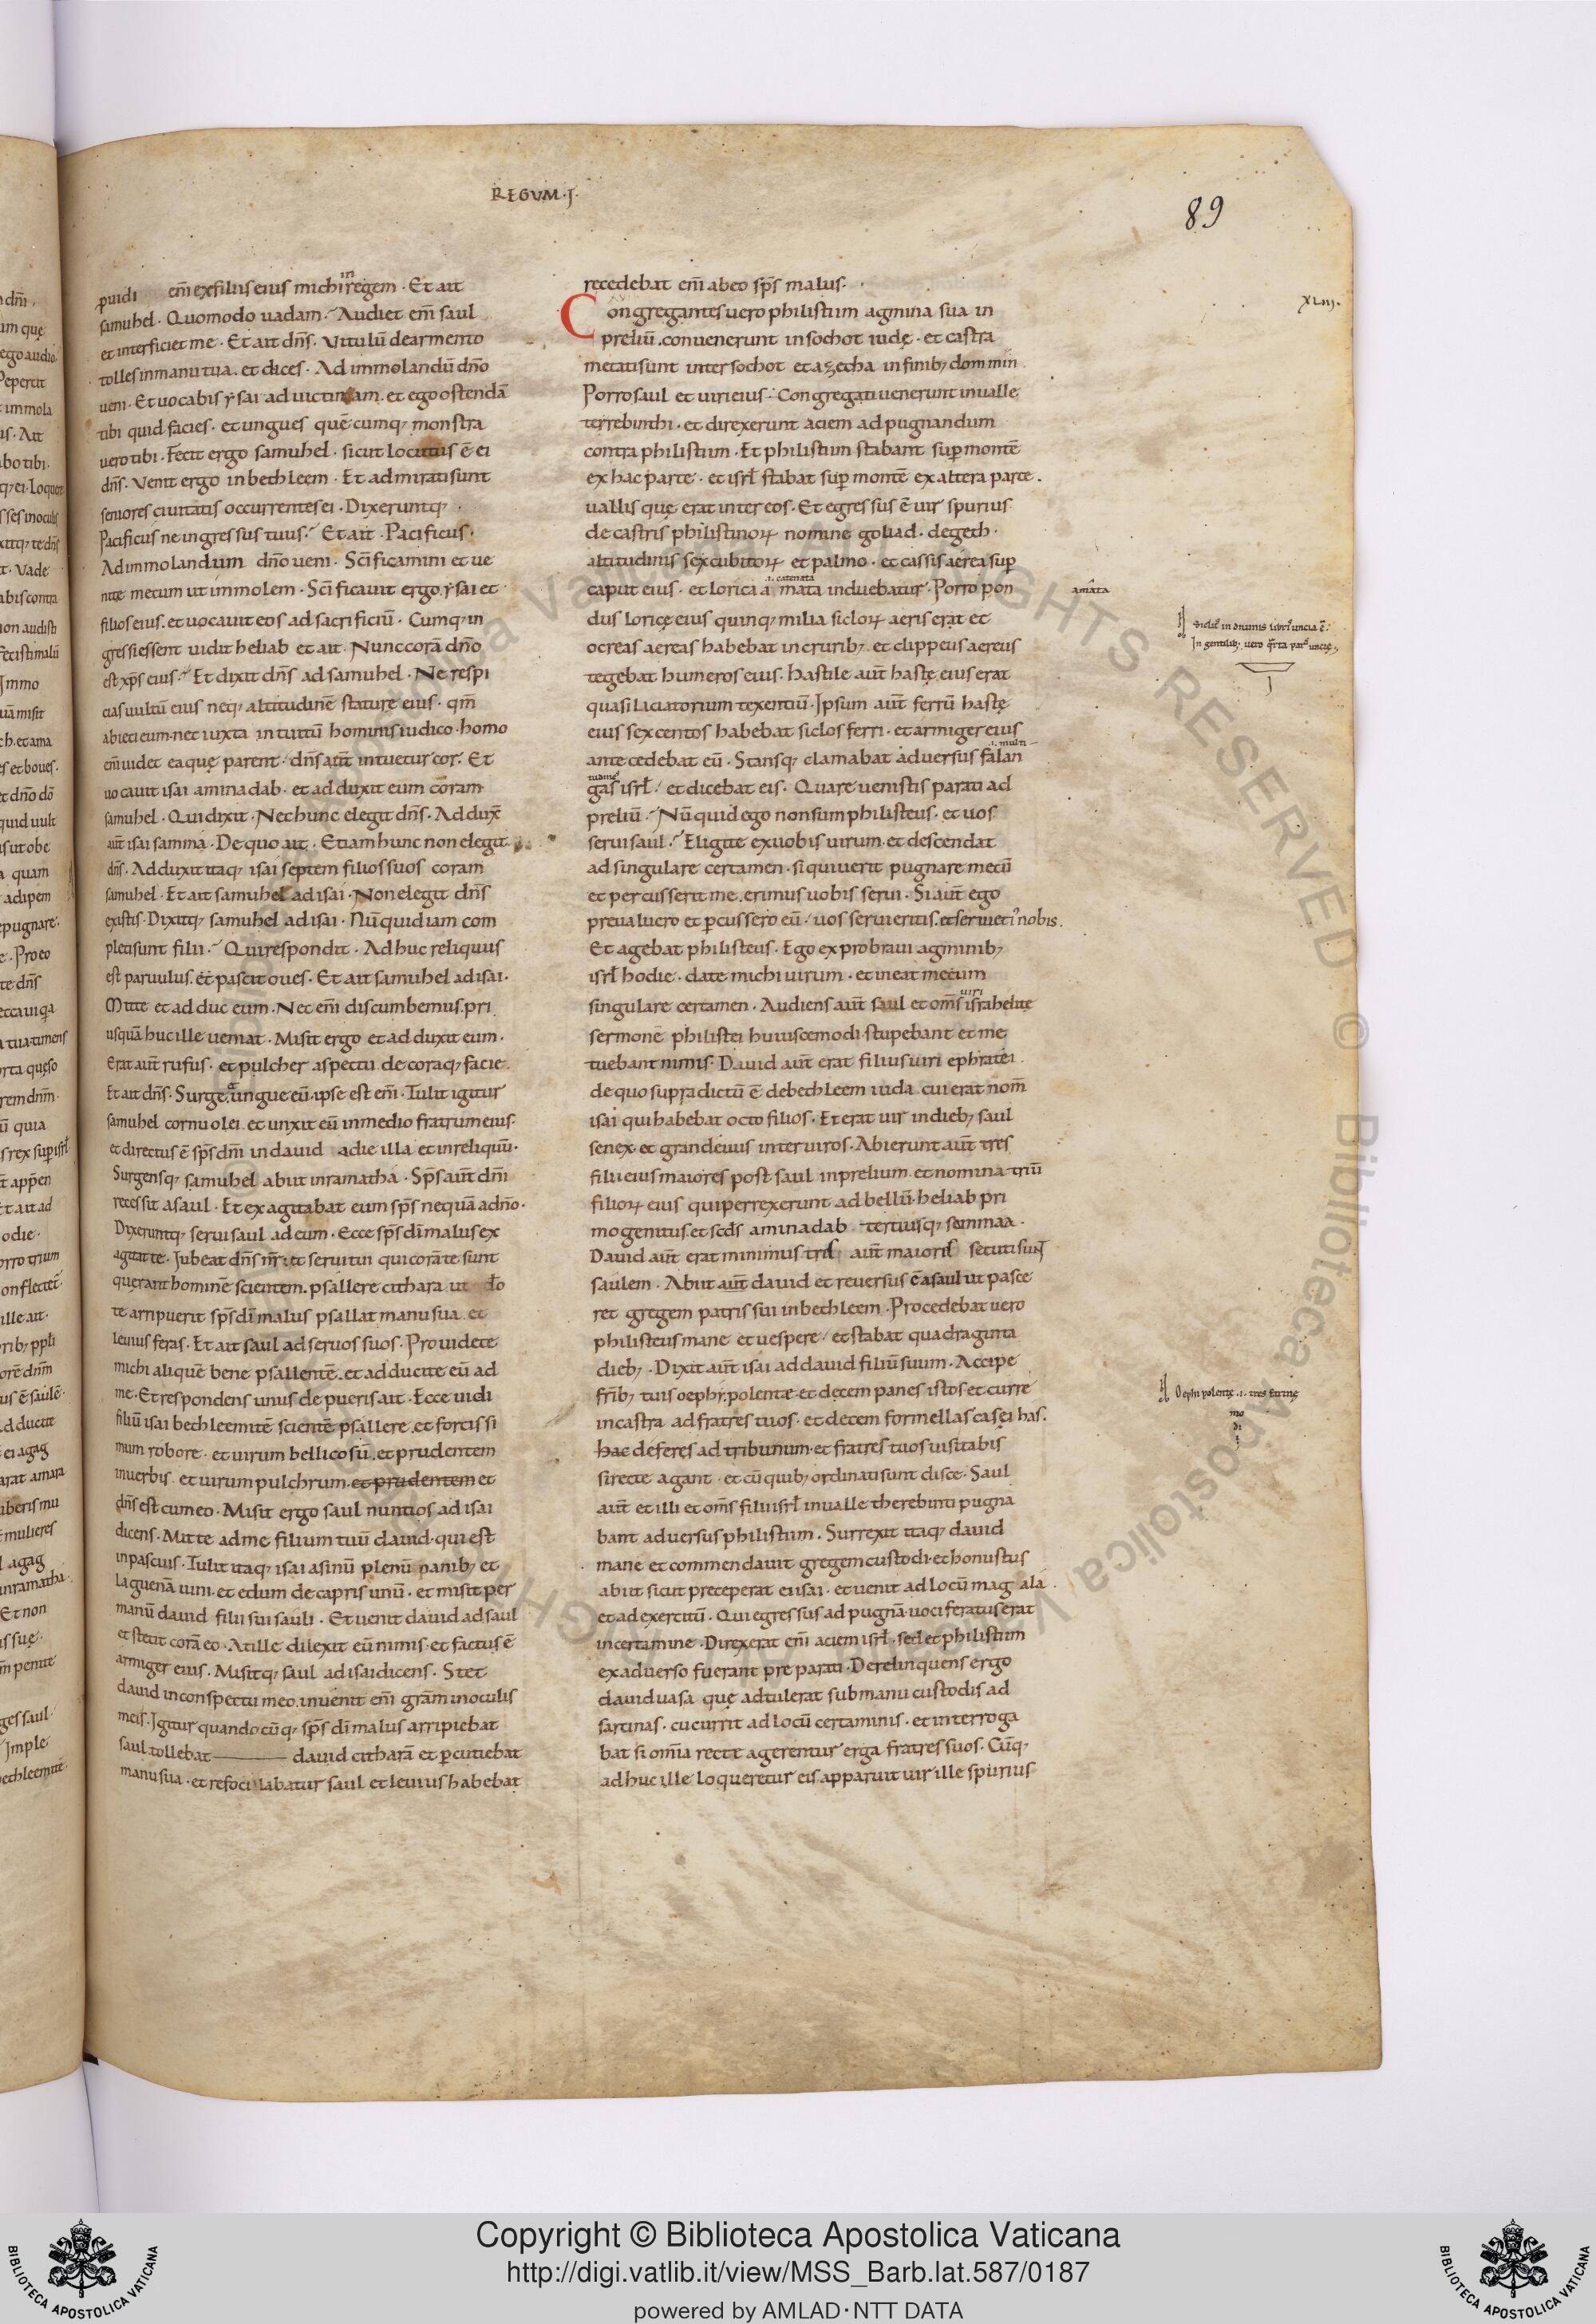 REGVM·I·
89
puidi em̄ ex filiis eius michi in regem · Et ait
samuhel · Quomodo uadam · Audiet em̄ saul
et interficiet me · Et ait dn̄s · Vitulū de armento
tolles in manu tua · et dices · Ad immolandū dn̄o
ueni · Et uocabis ysai ad uictimam · et ego ostendā
tibi quid facies · et ungues quē cumq; monstra
uero tibi · Fecit ergo samuhel · sicut locutus ē ei
dn̄s · Venit ergo in bethleem · Et admirati sunt
seniores ciuitatis occurrentes ei · Dixeruntq; ·
Pacificus ne ingressus tuus · Et ait · Pacificus ·
Ad immolandum dn̄o ueni · Sc̄ificamini et ue
nite mecum ut immolem · Sc̄ificauit ergo ysai et
filios eius · et uocauit eos ad sacrificiū · Cumq; in
gressi essent uidit heliab et ait · Nunc corā dn̄o
est xp̄s eius · Et dixit dn̄s ad samuhel · Ne respi
cias uultū eius neq; altitudinē staturę eius · qm̄
abieci eum · nec iuxta intuitū hominis iudico · homo
em̄ uidet ea quę parent · dn̄s aut̄ intuetur cor · Et
uocauit isai aminadab · et adduxit eum coram
samuhel · Qui dixit · Nec hunc elegit dn̄s · Addux̄
aut̄ isai samma · De quo ait · Etiam hunc non elegit
dn̄s · Adduxit itaq; isai septem filios suos coram
samuhel · Et ait samuhel ad isai · Non elegit dn̄s
ex istis · Dixitq; samuhel ad isai · Nū quid iam com
pleti sunt filii · Qui respondit · Adhuc reliquus
est paruulus · et pascit oues · Et ait samuhel ad isai ·
Mitte et adduc eum · Nec em̄ discumbemus · pri
usquā huc ille ueniat · Misit ergo et adduxit eum ·
Erat aut̄ rufus · et pulcher aspectu decoraq; facie ·
Et ait dn̄s · Surge · ungue eū · ipse est em̄ · Tulit igitur
samuhel cornu olei · et unxit eū in medio fratrum eius ·
et directus ē sp̄s dn̄i in dauid a die illa et in reliquū ·
Surgensq; samuhel abiit in ramatha · Sp̄s aut̄ dn̄i
recessit a saul · Et exagitabat eum sp̄s nequā a dn̄o ·
Dixeruntq; serui saul ad eum · Ecce sp̄s dī malus ex
agitat te · Iubeat dn̄s nr̄ · et serui tui qui corā te sunt
querant hominē scientem · psallere cithara ut do
te arripuerit sp̄s dī malus psallat manu sua et
leuius feras · Et ait saul ad seruos suos · Prouidete
michi aliquē bene psallentē · et adducite eū ad
me · Et respondens unus de pueris ait · Ecce uidi
filiū isai bethleemitē scientē psallere · et fortissi
mum robore · et uirum bellicosū · et prudentem
in uerbis · et uirum pulchrum · et prudentem et
dn̄s est cum eo · Misit ergo saul nuntios ad isai
dicens · Mitte ad me filium tuū dauid · qui est
in pascuis · Tulit itaq; isai asinū plenū panib; et
laguenā uini · et edum de capris unū · et misit per
manū dauid filii sui sauli · Et uenit dauid ad saul
et stetit corā eo · At ille dilexit eū nimis · et factus ē
armiger eius · Misitq; saul ad isai dicens · Stet
dauid in conspectu meo · inuenit em̄ grā̄m in oculis
meis · Igitur quando cūq; sp̄s dī malus arripiebat
saul · tollebat dauid citharā et p̄cutiebat
manu sua · et refocilabatur saul et leuius habebat
recedebat em̄ ab eo sp̄s malus ·
Congregantes uero philistiim agmina sua in
preliū · conuenerunt in sochot iudę · et castra
metati sunt inter sochot et azecha in finib; dommim ·
Porro saul et uiri eius · Congregati uenerunt in ualle
terrebinthi · et direxerunt aciem ad pugnandum
contra philistiim · Et philistiim stabant sup̄ montē
ex hac parte · et isrl̄ stabat sup̄ montē ex altera parte ·
uallis quę erat inter eos · Et egressus ē uir spurius
de castris philistinoꝝ nomine goliad · de geth ·
altitudinis sex cubitoꝝ et palmo · et cassis aerea sup̄
.i. catenata
caput eius · et lorica a mata induebatur · Porro pon
dus loricę eius quinq; milia sicloꝝ aeris erat et
ocreas aereas habebat in crurib; · et clippeus aereus
tegebat humeros eius · Hastile aut̄ hastę eius erat
quasi liciatorium texentiū · Ipsum aut̄ ferrū hastę
eius sexcentos habebat siclos ferri · et armiger eius
.i. multi
antecedebat eū · Stansq; clamabat aduersus falan
tudines
gas isrl̄ · et dicebat eis · Quare uenistis parati ad
preliū · Nū quid ego non sum philisteus · et uos
serui saul · Eligite ex uobis uirum · et descendat
ad singulare certamen · si quiuerit pugnare mecū
et percusserit me · erimus uobis serui · Si aut̄ ego
preualuero et p̄cussero eū · uos seruientis · et seruietis nobis ·
Et agebat philisteus · Ego exprobraui agminib;
isrl̄ hodie · date michi uirum · et ineat mecum
uiri
singulare certamen · Audiens aut̄ saul et om̄s israhelitę
sermonē philistei huiuscemodi · stupebant et me
tuebant nimis · Dauid aut̄ erat filius uiri ephratei ·
de quo supra dictū ē de bethleem iuda cui erat nom̄
isai qui habebat octo filios · Et erat uir in dieb; saul
senex · et grandeuus inter uiros · Abierunt aut̄ tres
filii eius maiores post saul in prelium · et nomina triū
filioꝝ eius qui perrexerunt ad bellū · heliab pri
mogenitus · et sc̄ds aminadab tertiusq; semmaa ·
Dauid aut̄ erat minimus trib; aut̄ maiorib; secuti sunt
saulem · Abiit aut̄ dauid et reuersus ē a saul ut pasce
ret gregem patris sui in bethleem · Procedebat uero
philisteus mane et uespere · et stabat quadraginta
dieb; · Dixit aut̄ isai ad dauid filiū suum · Accipe
fr̄ib; tuis oephi polentę et decem panes istos et curre
in castra ad fratres tuos · et decem formellas casei has ·
hac deferes ad tribunum · et fratres tuos uisitabis
si recte agant · et cū quib; ordinati sunt disce · Saul
aut̄ et illi et om̄s filii isrl̄ in ualle therebinti pugna
bant aduersus philistiim · Surrexit itaq; dauid
mane et commendauit gregem custodi · et honustus
abiit sicut preceperat ei isai · et uenit ad locū magala ·
et ad exercitū · Qui egressus ad pugnā uociferatus erat
in certamine · Direxerat em̄ aciem isrl̄ · sed et philistiim
ex aduerso fuerant preparati · Derelinquens ergo
dauid uasa quę adtulerat sub manu custodis ad
sarcinas · cucurrit ad locū certaminis · et interroga
bat si om̄ia recte agerentur erga fratres suos · Cūq;
adhuc ille loqueretur eis apparuit uir ille spurius
XLIII·
amāta
Siclus in diuinis libris uncia ē ·
In gentilib; uero q̄rta pars uncię ·
Oephi polentę .i. tres farinę
mo
di
i
Copyright © Biblioteca Apostolica Vaticana
http://digi.vatlib.it/view/MSS_Barb.lat.587/0187
powered by AMLAD·NTT DATA
BIBLIOTECA APOSTOLICA VATICANA
BIBLIOTECA APOSTOLICA VATICANA